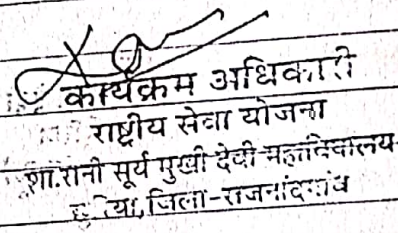 कार्यक्रम अधिकारी
राष्ट्रीय सेवा योजना
शा.रानी सूर्य मुखी देवी महाविद्यालय
जिला-राजनांदगांव